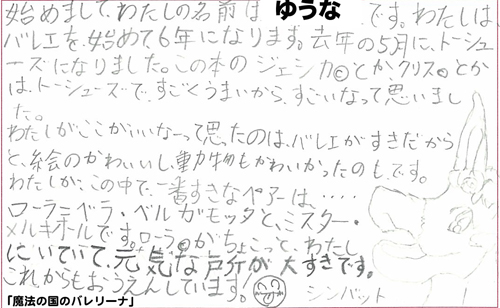 始めまして、わたしの名前は ゆうな です。わたしは
バレエを始めて、6年になります。去年の5月に、トーシュ
ーズになりました。この本のジェシカ◎とかクリス◎とか
は、トーシューズで、すごくうまいから、すごいなって思いまし
た。
わたしがここがいいなーって思ったのは、バレエがすきだから
と、絵のかわいいし、動物もかわいかったのもです。
わたしが、この中で、一番すきなペアーは、‥‥
ローラ=ベラ・ベルガモッタと、ミスター・
メルキオールです。ローラ◎がちょこっと、わたし
ににていて、元気な所が大すきです。
これからもおうえんしています!
シンバット
「魔法の国のバレリーナ」